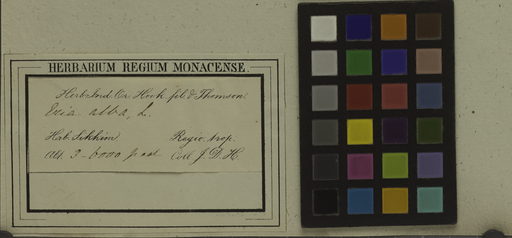 HERBARIUM REGIUM MONACENSE.
Herb. Ind. Or. Hook. fil. & Thomson.
Eria alba, L.
Hab. Sikkim Regio trop.
Alt. 3-6000 ped. Coll. J. D. H.